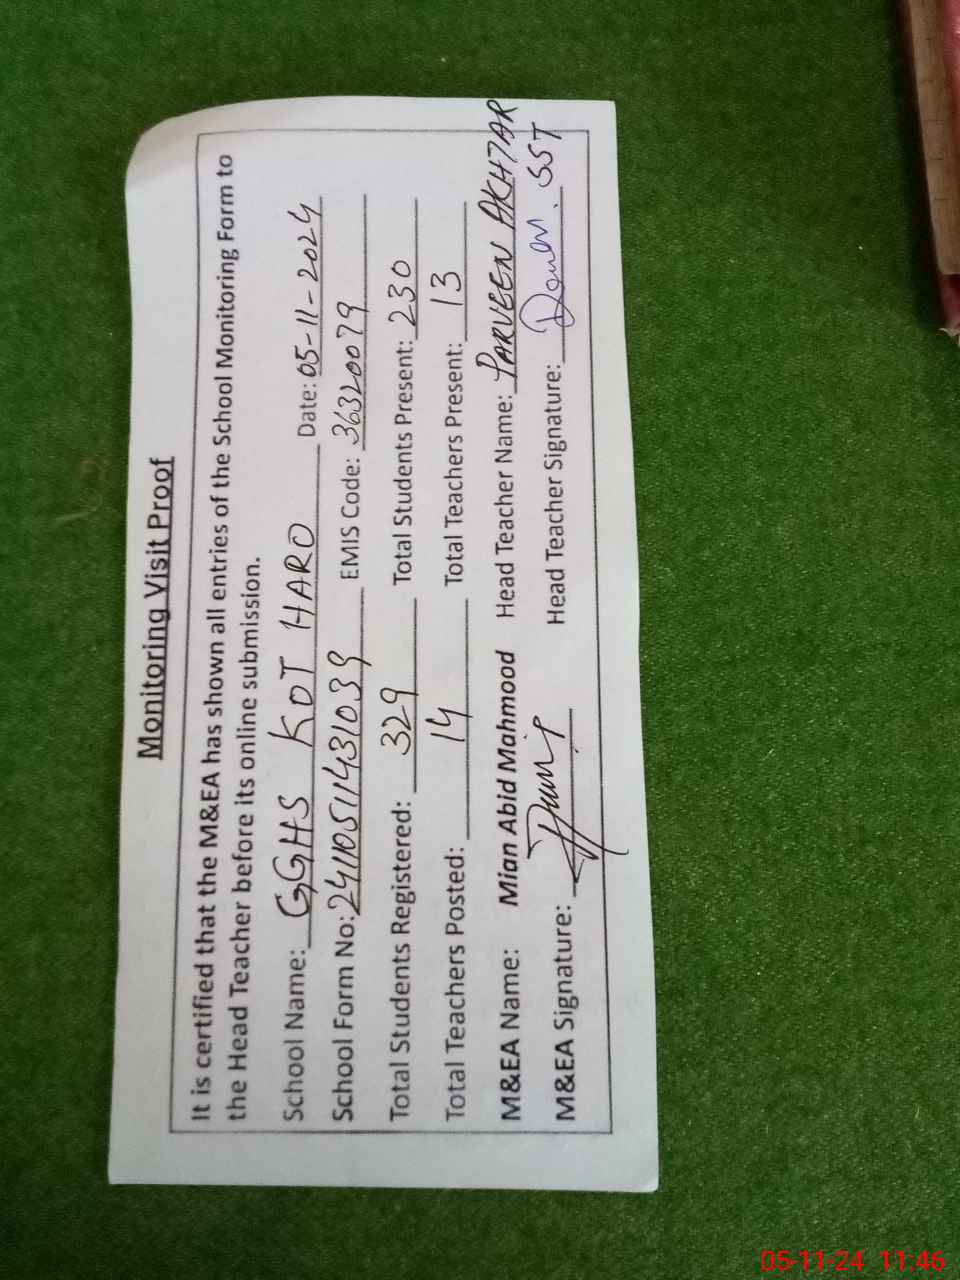 Monitoring Visit Proof
It is certified that the M&EA has shown all entries of the School Monitoring Form to
the Head Teacher before its online submission.
School Name: GGHS KOT HARO Date: 05-11-2024
School Form No: 24110511431039 EMIS Code: 36320079
Total Students Registered: 329 Total Students Present: 230
Total Teachers Posted: 14 Total Teachers Present: 13
M&EA Name: Mian Abid Mahmood Head Teacher Name: PARVEEN AKHTAR
M&EA Signature: Head Teacher Signature: SST
05-11-24 11:46